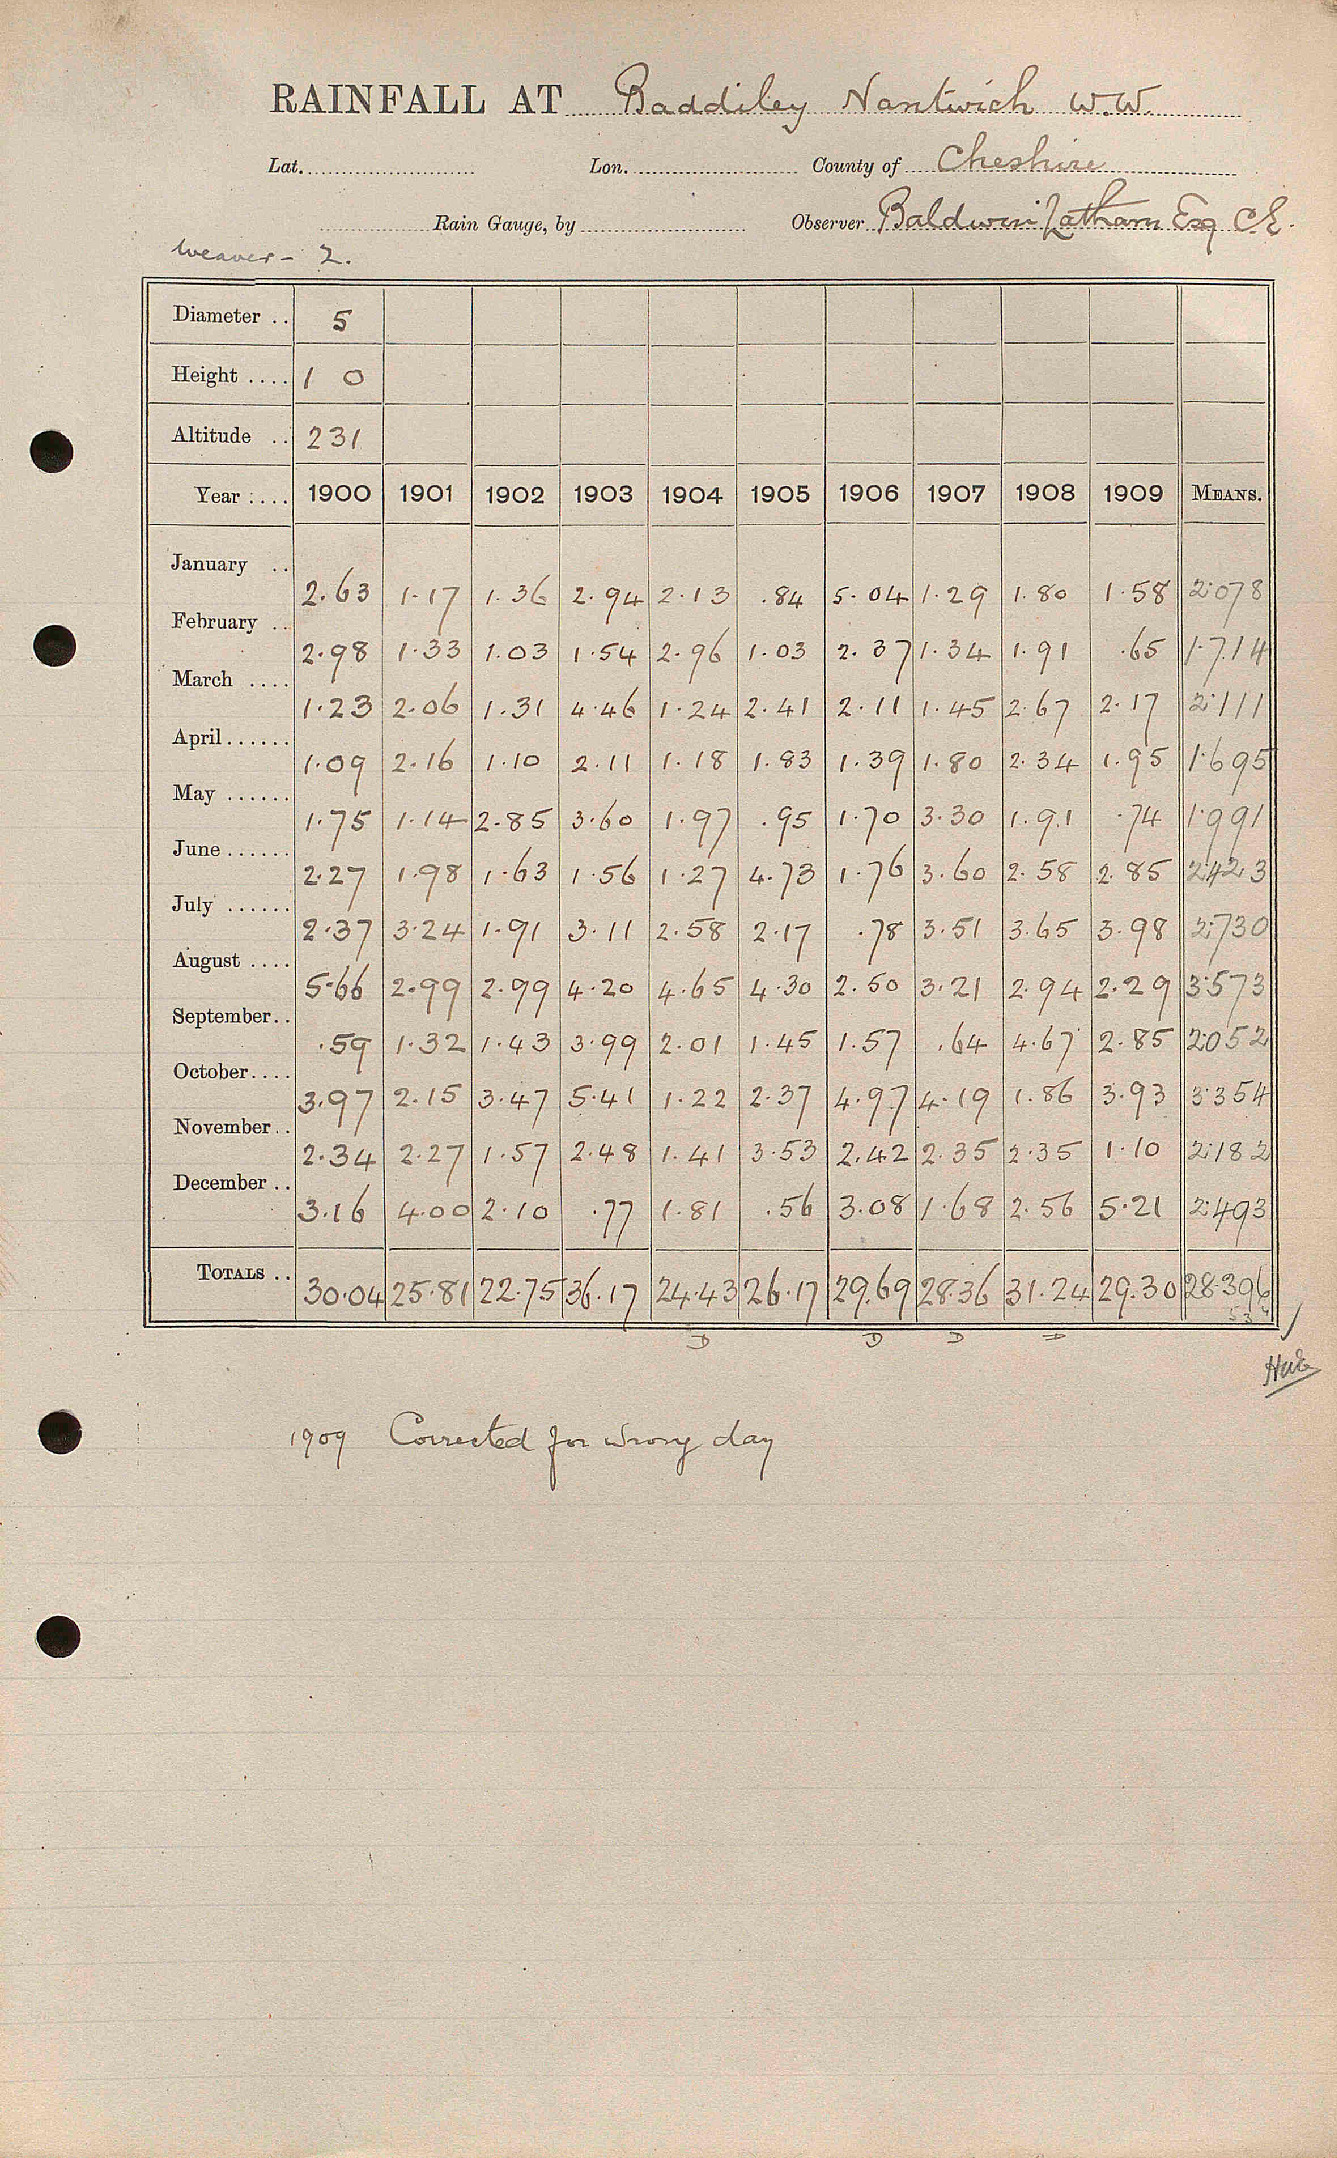 RAINFALL AT Baddiley Nantwich W.W.
Lat. Lon. County of Cheshire
Rain Gauge, by Observer Baldwin Latham Esq C.E.
Weaver - 2.
Diameter .. 5
Height .... 1 0
Altitude .. 231
Year .... 1900 1901 1902 1903 1904 1905 1906 1907 1908 1909 MEANS.
January .. 2.63 1.17 1.36 2.94 2.13 .84 5.04 1.29 1.80 1.58 2.078
February .. 2.98 1.33 1.03 1.54 2.96 1.03 2.37 1.34 1.91 .65 1.714
March .... 1.23 2.06 1.31 4.46 1.24 2.41 2.11 1.45 2.67 2.17 2.111
April...... 1.09 2.16 1.10 2.11 1.18 1.83 1.39 1.80 2.34 1.95 1.695
May ...... 1.75 1.14 2.85 3.60 1.97 .95 1.70 3.30 1.91 .74 1.991
June...... 2.27 1.98 1.63 1.56 1.27 4.73 1.76 3.60 2.58 2.85 2.423
July ...... 2.37 3.24 1.91 3.11 2.58 2.17 .78 3.51 3.65 3.98 2.730
August .... 5.66 2.99 2.99 4.20 4.65 4.30 2.50 3.21 2.94 2.29 3.573
September.. .59 1.32 1.43 3.99 2.01 1.45 1.57 .64 4.67 2.85 2.052
October.... 3.97 2.15 3.47 5.41 1.22 2.37 4.97 4.19 1.86 3.93 3.354
November.. 2.34 2.27 1.57 2.48 1.41 3.53 2.42 2.35 2.35 1.10 2.182
December .. 3.16 4.00 2.10 .77 1.81 .56 3.08 1.68 2.56 5.21 2.493
TOTALS .. 30.04 25.81 22.75 36.17 24.43 26.17 29.69 28.36 31.24 29.30 28.396
D D D D
1909 Corrected for wrong day